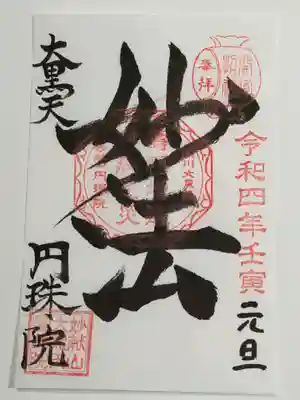 奉拝
令和四年壬寅
元旦
妙法
大黒天
円珠院